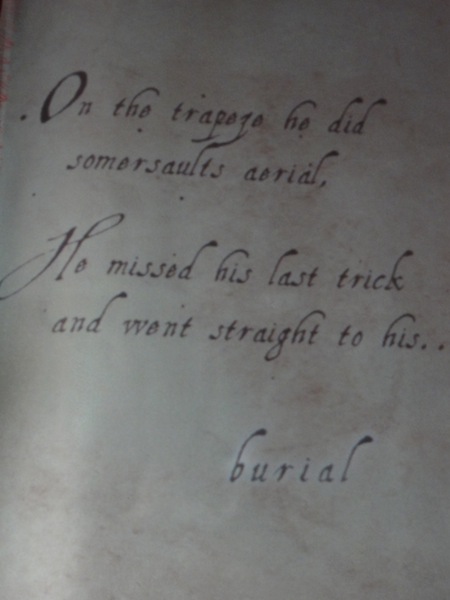 On the trapeze he did
somersaults aerial,
He missed his last trick
and went straight to his..
burial